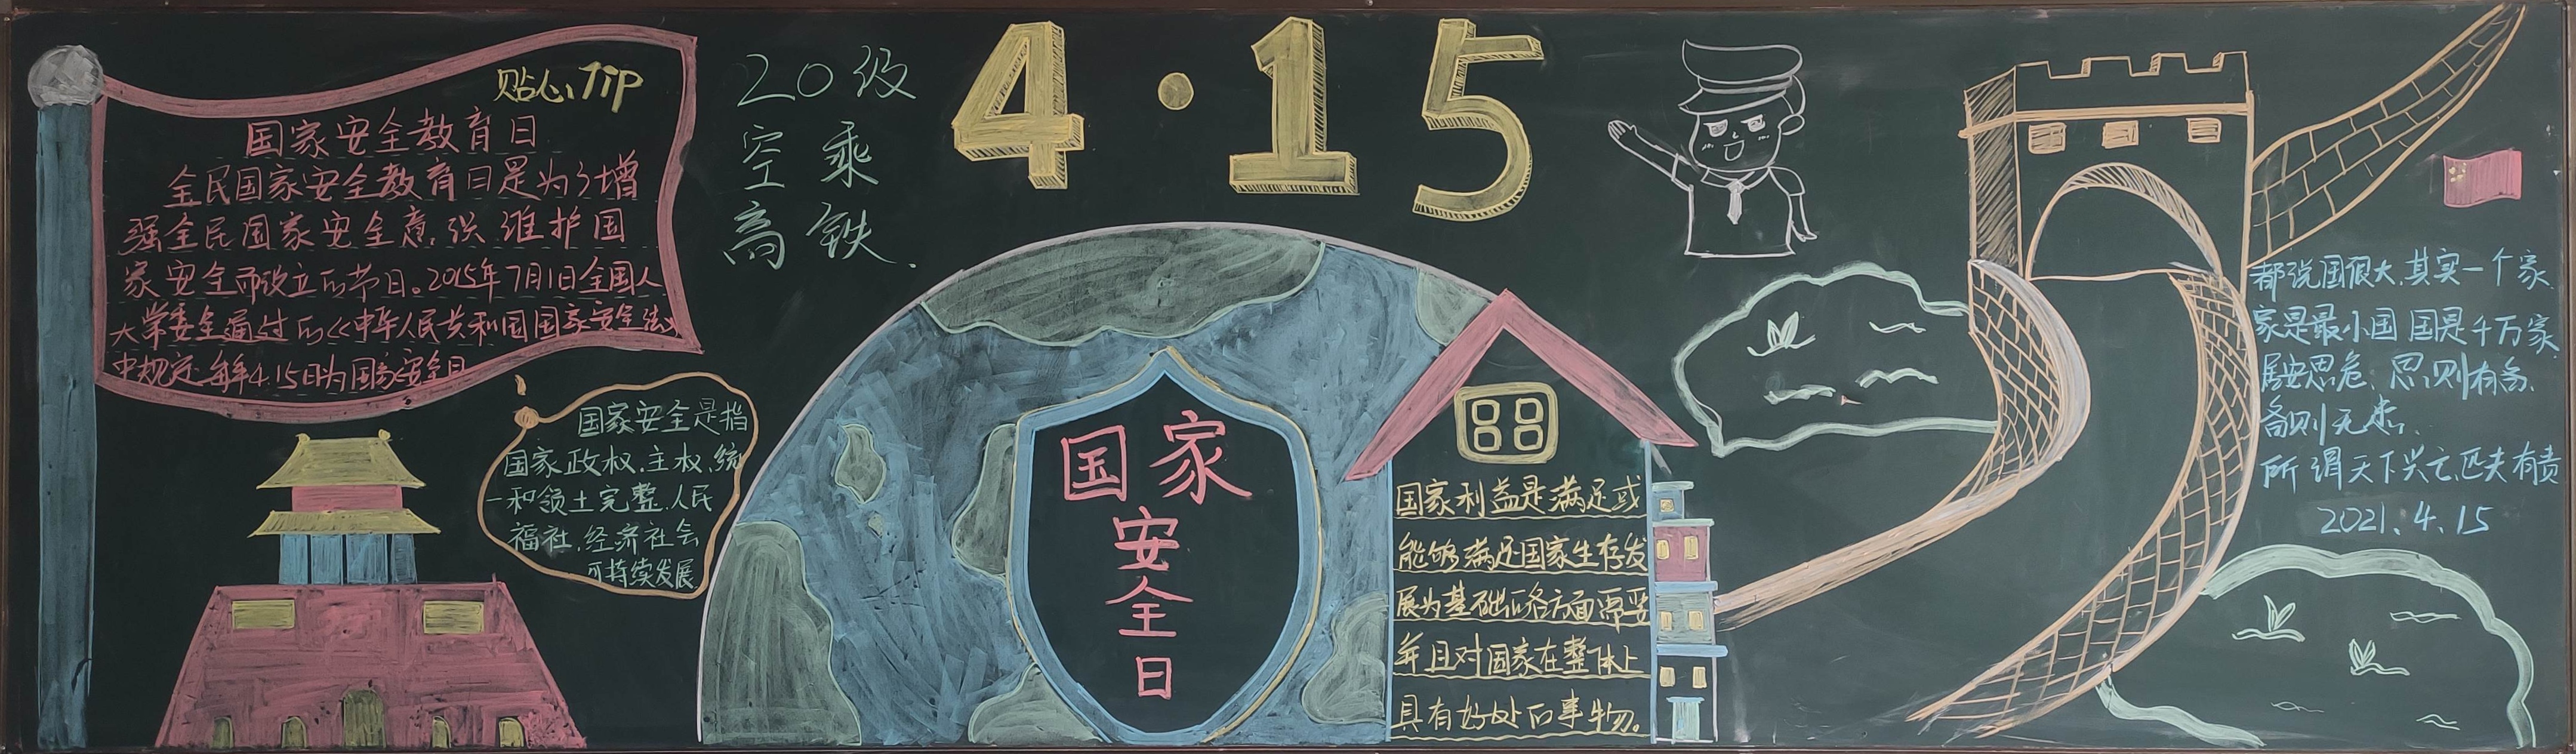 贴心Tip
国家安全教育日
全民国家安全教育日是为了增
强全民国家安全意识,维护国
家安全而设立的节日。2015年7月1日全国人
大常委全通过的《中华人民共和国国家安全法》
中规定每年4.15日为国家安全日
国家安全是指
国家政权.主权.统
一和领土完整.人民
福祉.经济社会
可持续发展
20级
空乘
高铁.
4·15
国家
安全
日
国家利益是满足或
能够满足国家生存发
展为基础的各方面需要
并且对国家在整体上
具有好处的事物。
都说国很大.其实一个家.
家是最小国 国是千万家.
居安思危.思则有备.
备则无患.
所谓天下兴亡.匹夫有责
2021.4.15